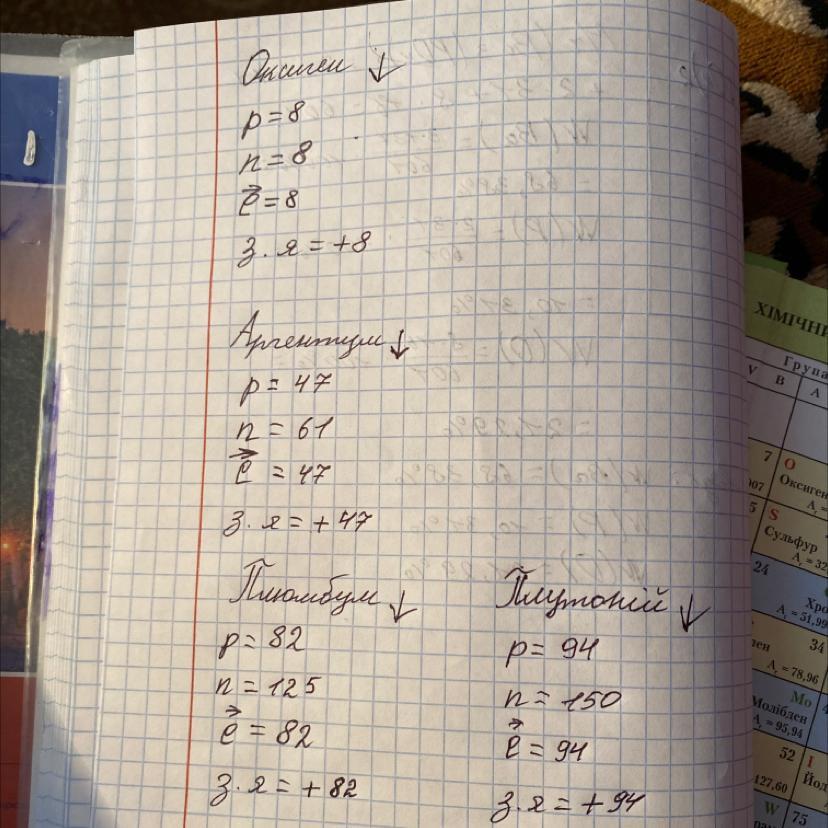 Оксиген ↓
p = 8
n = 8
e = 8
з.я = +8
Аргентум ↓
p = 47
n = 61
e = 47
з.я = +47
Плюмбум ↓
p = 82
n = 125
e = 82
з.я = +82
Плутоній ↓
p = 94
n = 150
e = 94
з.я = +94
ХІМІЧНИ
Група
V
В А
7 О
007 Оксиген
5 S
Сульфур
24
Хро
51,99
34
ен
78,96
Мо
Молібден
= 95,94
52 I
127,60 Йод
W 75